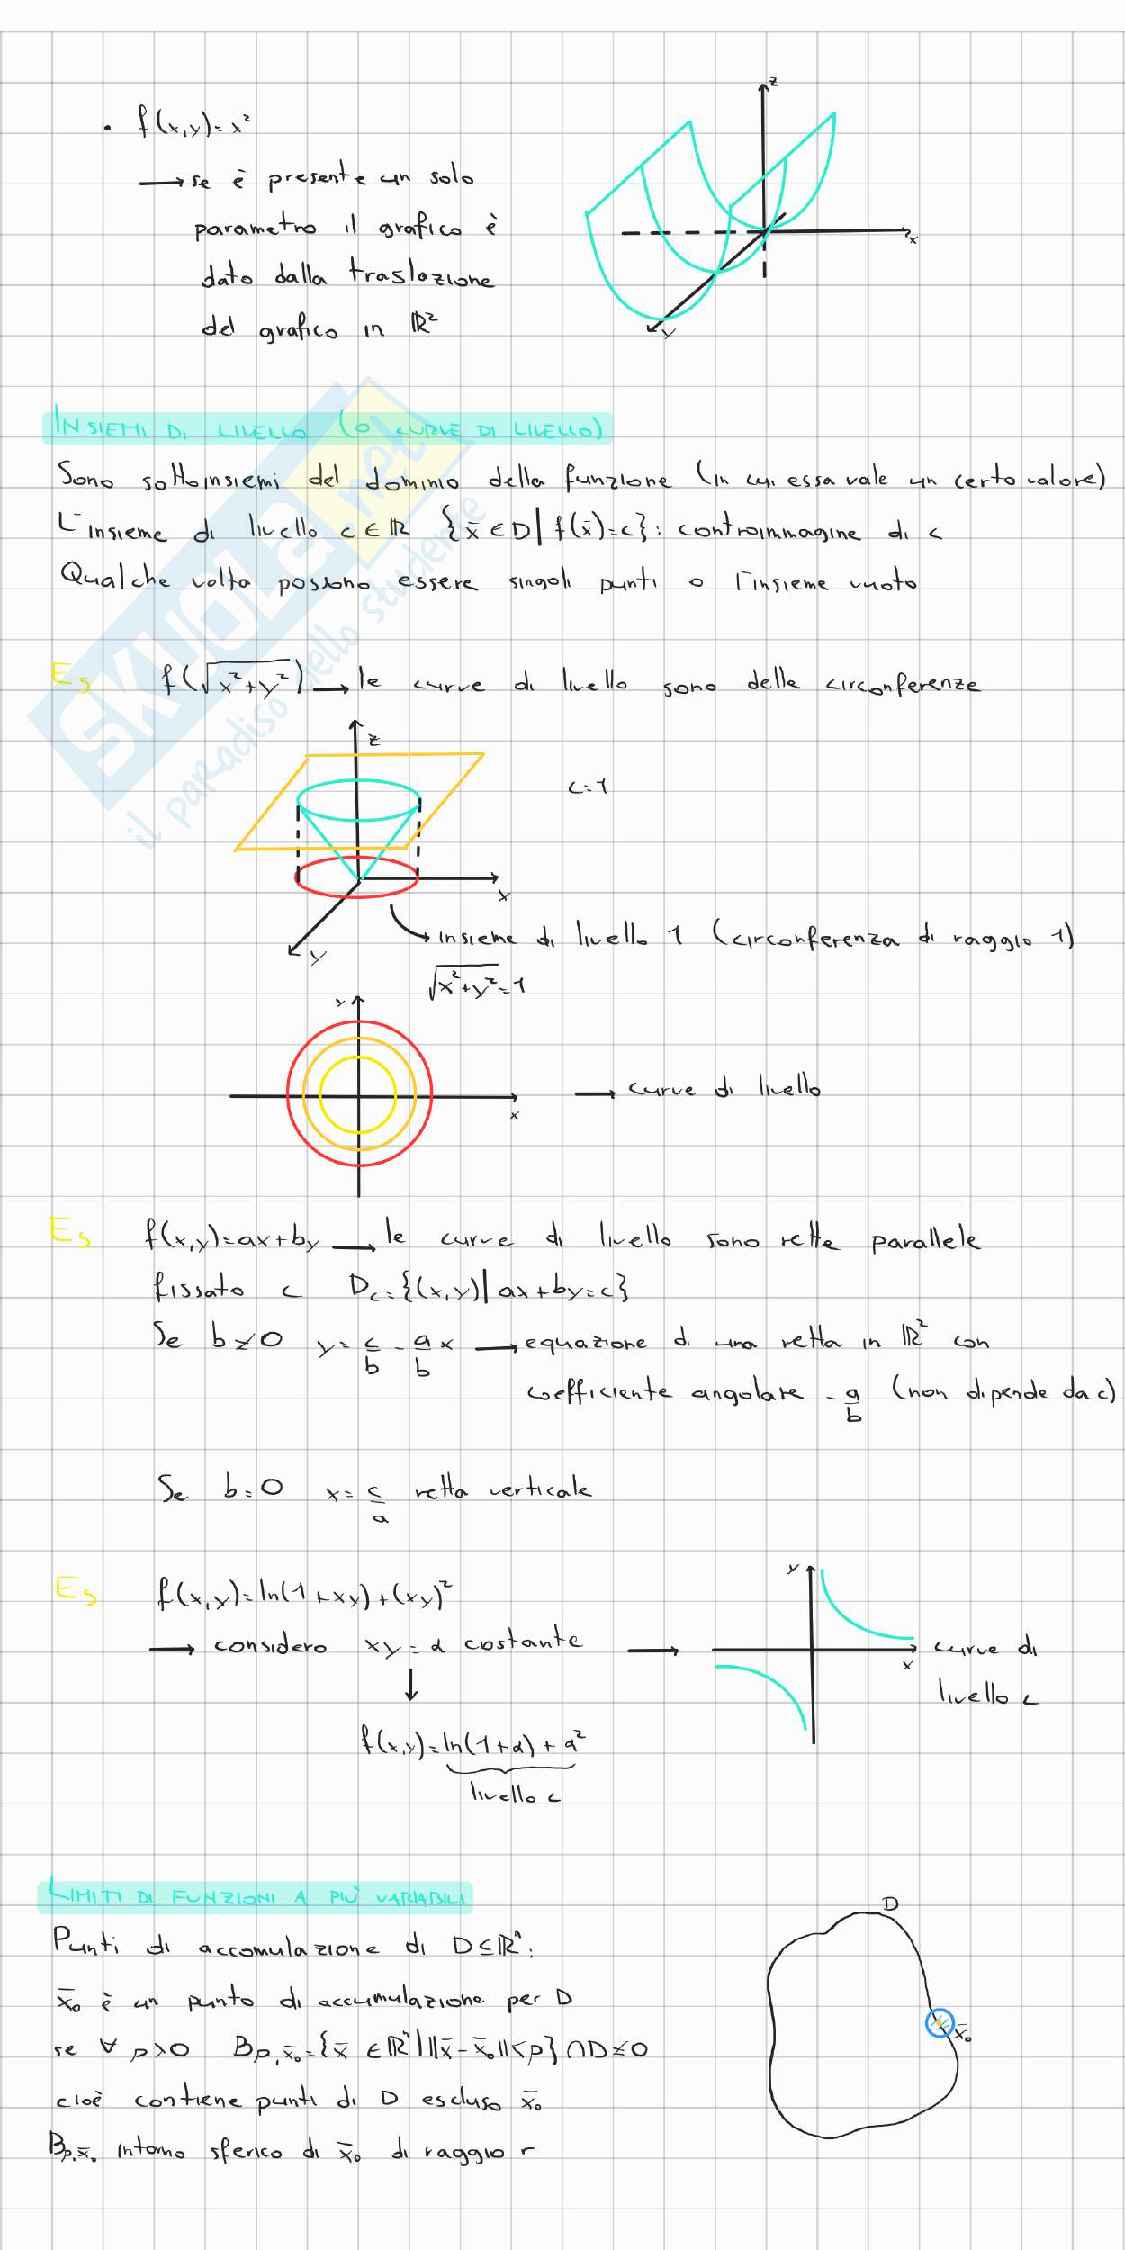 • f(x,y)=x²
z
→ se è presente un solo
parametro il grafico è
x
dato dalla traslazione
del grafico in ℝ²
y
INSIEMI DI LIVELLO (O CURVE DI LIVELLO)
Sono sottoinsiemi del dominio della funzione (in cui essa vale un certo valore)
L'insieme di livello c∈ℝ {x̄∈D|f(x̄)=c}: controimmagine di c
Qualche volta possono essere singoli punti o l'insieme vuoto
Es f(√x²+y²) → le curve di livello sono delle circonferenze
z
c=1
x
insieme di livello 1 (circonferenza di raggio 1)
y
√x²+y²=1
y
→ curve di livello
x
Es f(x,y)=ax+by → le curve di livello sono rette parallele
fissato c D_c={(x,y)|ax+by=c}
Se b≠0 y=c/b-a/b x → equazione di una retta in ℝ² con
coefficiente angolare -a/b (non dipende da c)
Se b=0 x=c/a retta verticale
y
Es f(x,y)=ln(1+xy)+(xy)²
→ considero xy=α costante → x curve di
↓ livello c
f(x,y)=ln(1+α)+α²
livello c
LIMITI DI FUNZIONI A PIÙ VARIABILI
D
Punti di accomulazione di D⊆ℝⁿ:
x̄₀ è un punto di accumulazione per D
x̄₀
se ∀ρ>0 Bρ,x̄₀={x̄∈ℝⁿ|||x̄-x̄₀||<ρ}∩D≠0
cioè contiene punti di D escluso x̄₀
Bρ,x̄₀ intorno sferico di x̄₀ di raggio r
SKUOLA.net
il paradiso dello studente